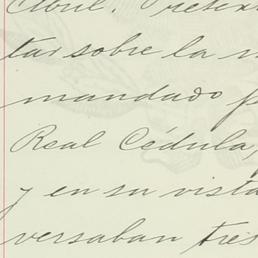 Abril.
tar sobre la
mandado
Real Cédula,
y en su vista
versaban tres